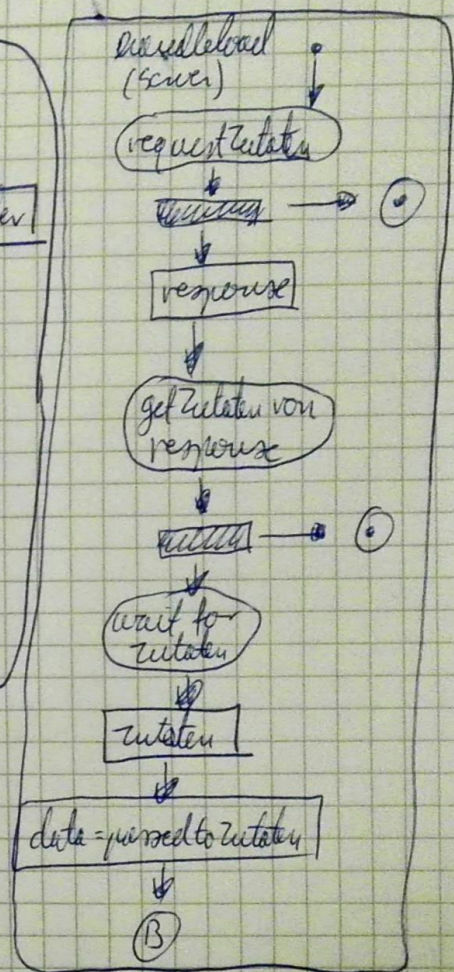 (Server)
request Zutaten
er
response
get Zutaten von
response
wait for
Zutaten
Zutaten
data = passed to Zutaten
B